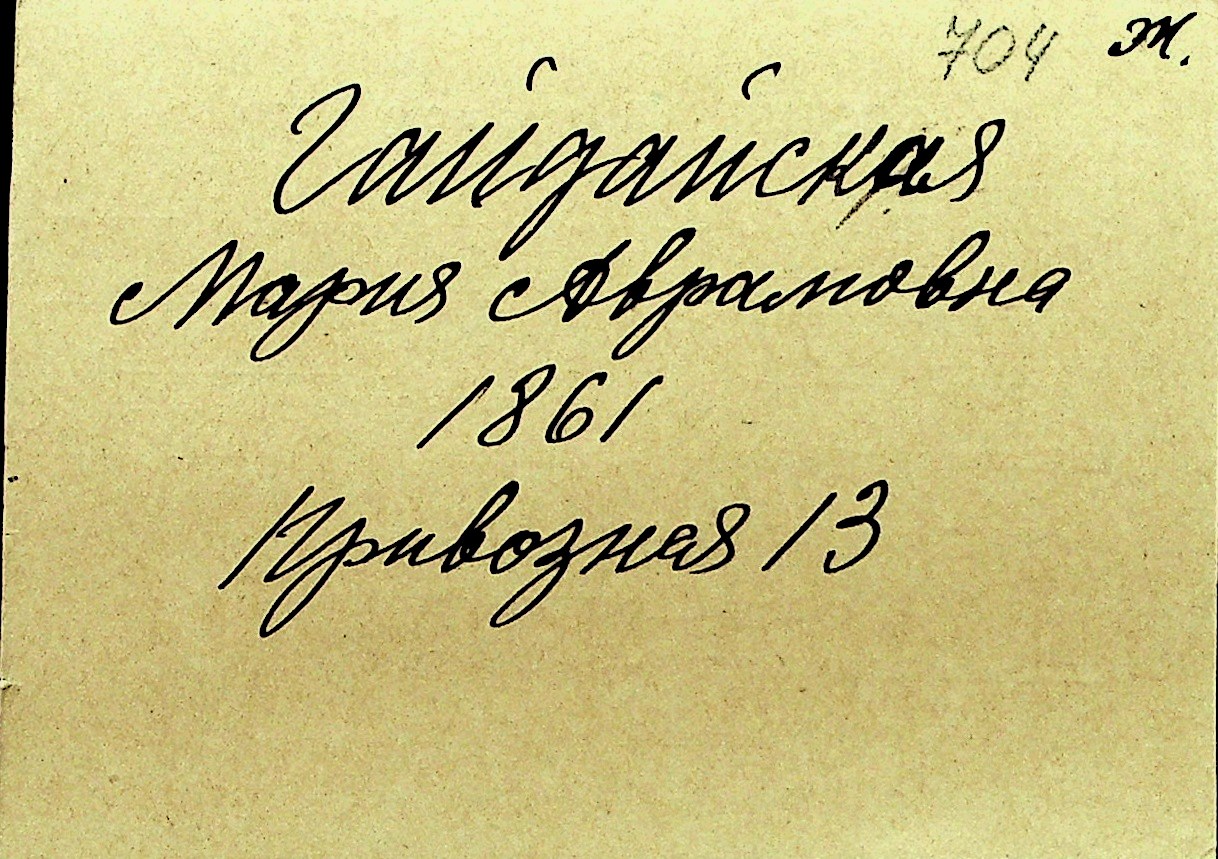 704 Ж.
Гайдайская
Мария Аврамовна
1861
Привозная 13